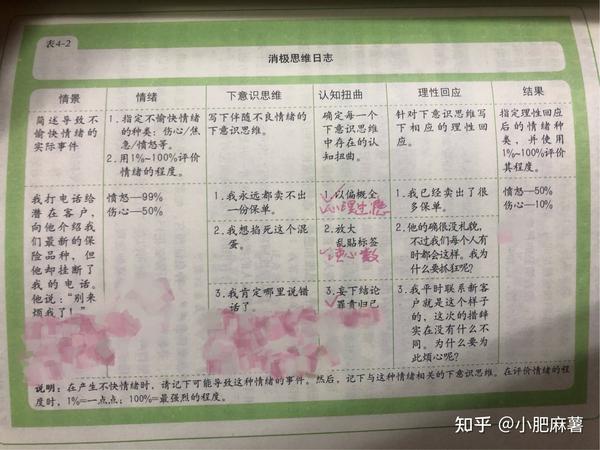 表4-2
消极思维日志
情景
情绪
下意识思维
认知扭曲
理性回应
结果
简述导致不
愉快情绪的
实际事件
1.指定不愉快情绪
的种类：伤心/焦
急/愤怒等。
2.用1%~100%评价
情绪的程度。
写下伴随不良情绪的
下意识思维。
确定每一个
下意识思维
中存在的认
知扭曲。
针对下意识思维写
下相应的理性回
应。
指定理性回应
后的情绪种
类，并使用
1%~100%评价
其程度。
我打电话给
潜在客户，
向他介绍我
们最新的保
险品种，但
他却挂断了
我的电话。
他说：“别来
烦我了！”
愤怒—99%
伤心—50%
1.我永远都卖不出
一份保单。
2.我想掐死这个混
蛋。
3.我肯定哪里说错
话了。
1.以偏概全
心理过滤
2.放大
乱贴标签
读心术
3.妄下结论
罪责归己
1.我已经卖出了很
多保单。
2.他的确很没礼貌，
不过我们每个人有
时都会这样。我为
什么要抓狂呢？
3.我平时联系新客
户就是这个样子
的，这次的措辞
实在没有什么不
同。为什么要为
此烦心呢？
愤怒—50%
伤心—10%
说明：在产生不快情绪时，请记下可能导致这种情绪的事件。然后，记下与这种情绪相关的下意识思维。在评价情绪的程
度时，1%=一点点；100%=最强烈的程度。
知乎 @小肥麻薯